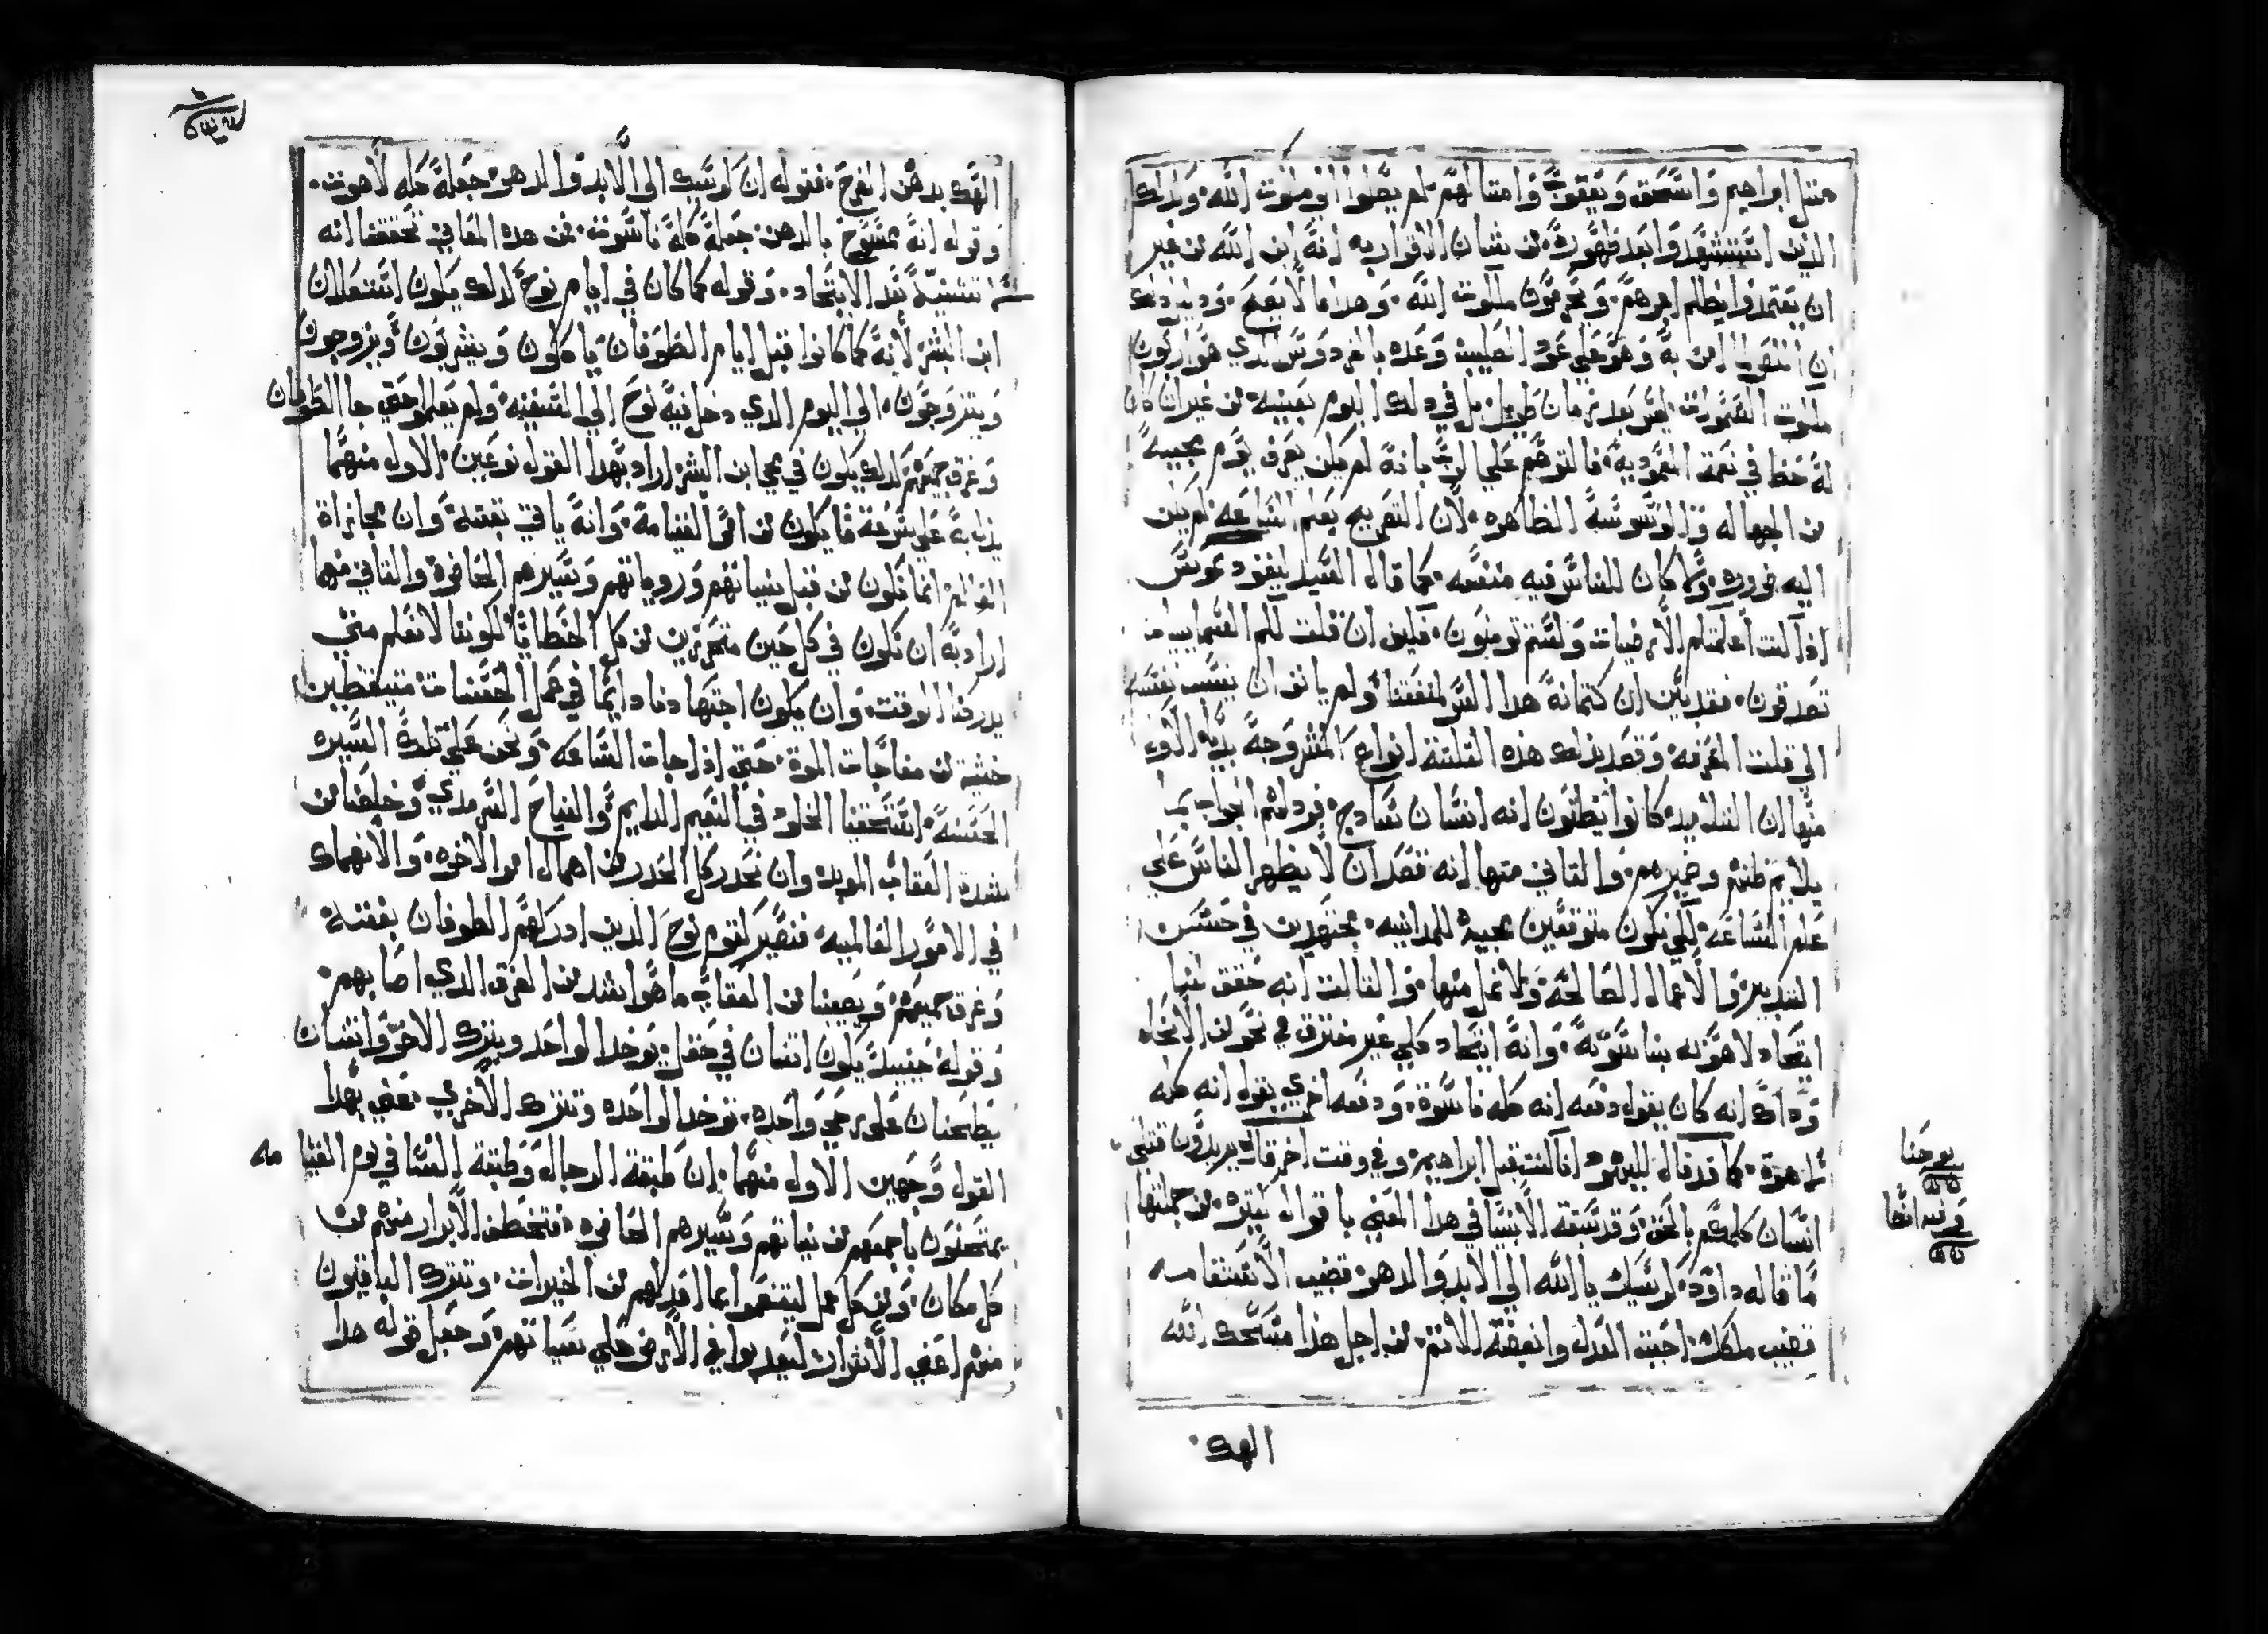 متل ابراهيم واسحق ويعقوب وامتالهم لم يصلوا الي ملكوت الله واوليك
الذين استشهدوا بعد ظهوره من شان الاقرار به انه ابن الله من غير
ان يعتمدوا يظلم امرهم ويحرمون ملكوت الله وهدا ما لا يصح ودليل دلك
ان اللص لما امن به وهو علي عود الصليب وعده بالفردوس الدي هو اربون
ملكوت السموات ليس بعد زمان طويل بل في دلك اليوم بعينه من غير ان كان
له حظا في نعمة المعمودية فالتوهم علي الرب بانه لم يكن يعرف يوم مجييه
من الجهاله والوسوسة الظاهره لان التصريح بعلم الساعه لم يكن
اليه ضروره ولما كان للناس فيه منفعه كما قال السيد لنيقوديموس
اذا كنت اعلمتكم الارضيات ولستم تومنون فكيف ان قلت لكم السماييات
تصدقون فقد بين ان كتمانه هدا السر لمنفعتنا ولم يات ان ينسب نفسه
الي قلت المعرفه وقصد بذلك هذه التلتة انواع المشروحة بديا الاول
منها ان التلاميد كانوا يظنون انه انسان سادج فرد لهم الجواب بما
يلايم ظنهم وضميرهم والتاني منها انه قصد ان لا يظهر الناس علي
علم الساعه لكي نكون متوقعين مجييه للمداينيه مجتهدين في حسن
التدبير والاعمال الصالحة ولا نمل منها والتالت انه حقق لنا
اتحاد لاهوته بناسوته وانه اتحاد كلي غير مفترق في نحو من الانحاء
وداك انه كان يقول دفعه انه كله ناسوت ودفعه اخري يقول انه كله
لاهوت كما قد قال لليهود انا كنت قبل ابراهيم وفي وقت اخر قال تريدون قتلي
انسان كلمكم بالحق وقد سبقه الانبيا في هدا المعني باقوال كتيره من جملتها
ما قاله داود كرسيك يا الله الي الابد والدهر قضيب الاستقامه
قضيب ملكك احببت العدل وابغضت الاتم من اجل هذا مسحك الله
الهك
يوحنا
الهك بدهن الفرح فقوله ان كرسيك الي الابد والدهر جعله كله لاهوت
وقوله انه ممسوح بالدهن جعله كله ناسوت فمن هده المعاني تحققنا انه
بعد الاتحاد وقوله كما كان في ايام نوح كدلك يكون استعلان
ابن البشر لانه كما كانوا قبل ايام الطوفان ياكلون ويشربون ويزوجون
ويتزوجون الي اليوم الدي دخل فيه نوح الي السفينه ولم يعلموا حتي جا الطوفان
وغرق جميعهم كدلك يكون في مجي ابن البشر اراد بهدا القول نوعين الاول منهما
علي سرعة ما يكون من امر القيامة وانه ياتي بغتة وان مجازاة
العالم انما تكون من قبل نياتهم وروياتهم وسيرهم الحاضره والتاني منهما
اراد به ان نكون في كل حين متحرزين من كل الخطايا لكوننا لا نعلم متي
يدركنا الوقت وان يكون اجتهادنا دايما في عمل الحسنات متيقظين
خشية من مفاجات الموت حتي اذا جات الساعه ونحن علي تلك السيره
الحسنة استحقينا الخلود في النعيم الدايم والنياح السرمدي وخلصنا من
شدة العقاب الموبد وان نحدر كل الحدر من اهمال امر الاخره والانهماك
في الامور العالميه فنصير كقوم نوح الدين ادركهم الطوفان بغتة
وغرق جميعهم ويصيبنا من العقاب ما هو اشد من الغرق الدي اصابهم
وقوله حينيد يكون اتنان في حقل يوخد الواحد ويترك الاخر واتنتان
يطحنان علي رحي واحده توخد الواحده وتترك الاخري عني بهدا
القول وجهين الاول منهما ان طبقة الرجال وطبقة النسا في يوم القيامه
يمتحنون باجمعهم من نياتهم وسيرهم الحاضره فتخطف الابرار منهم من
كل مكان ومن كل عمل ليتنعموا بما اعد لهم من الخيرات وتترك الباقيون
منهم اعني الاشرار ليعدبوا في الارض علي سياتهم وجعل قوله هدا